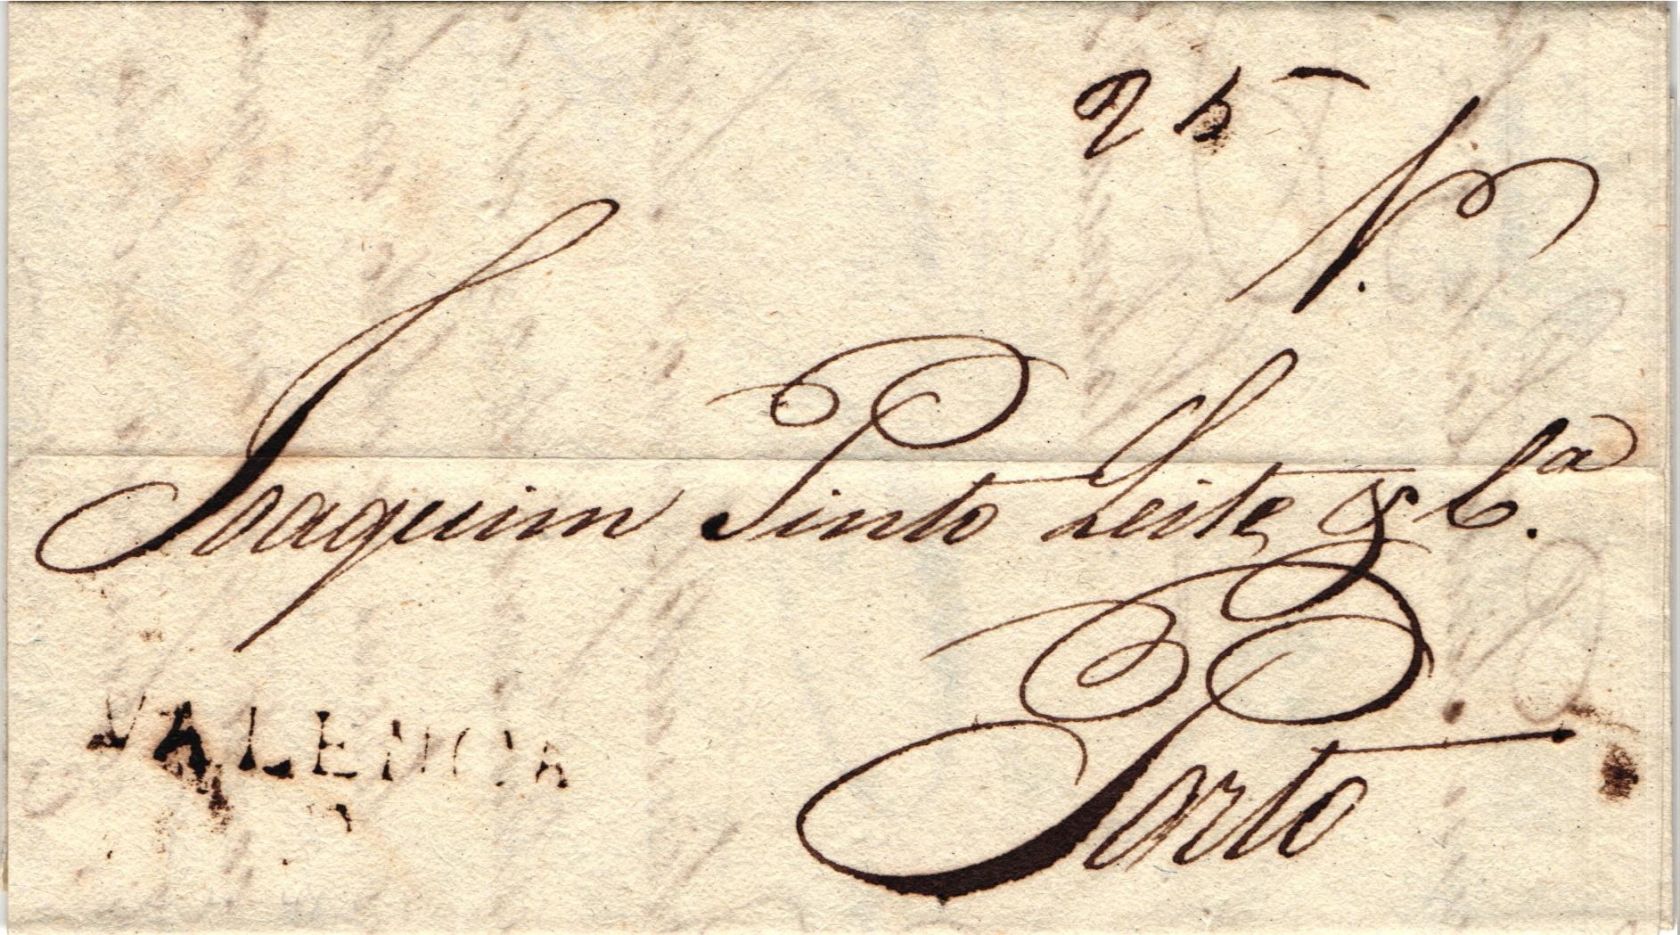 25
N.
Joaquim Pinto Leite & C.ª
Porto
VALENCA